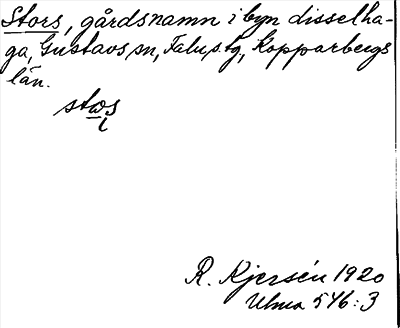 Stors, gårdsnamn i byn disselha-
ga, Gustavs sn, Falu s. tg, Kopparbergs
län.
R. Kjersén 1920
Ulma 546:3